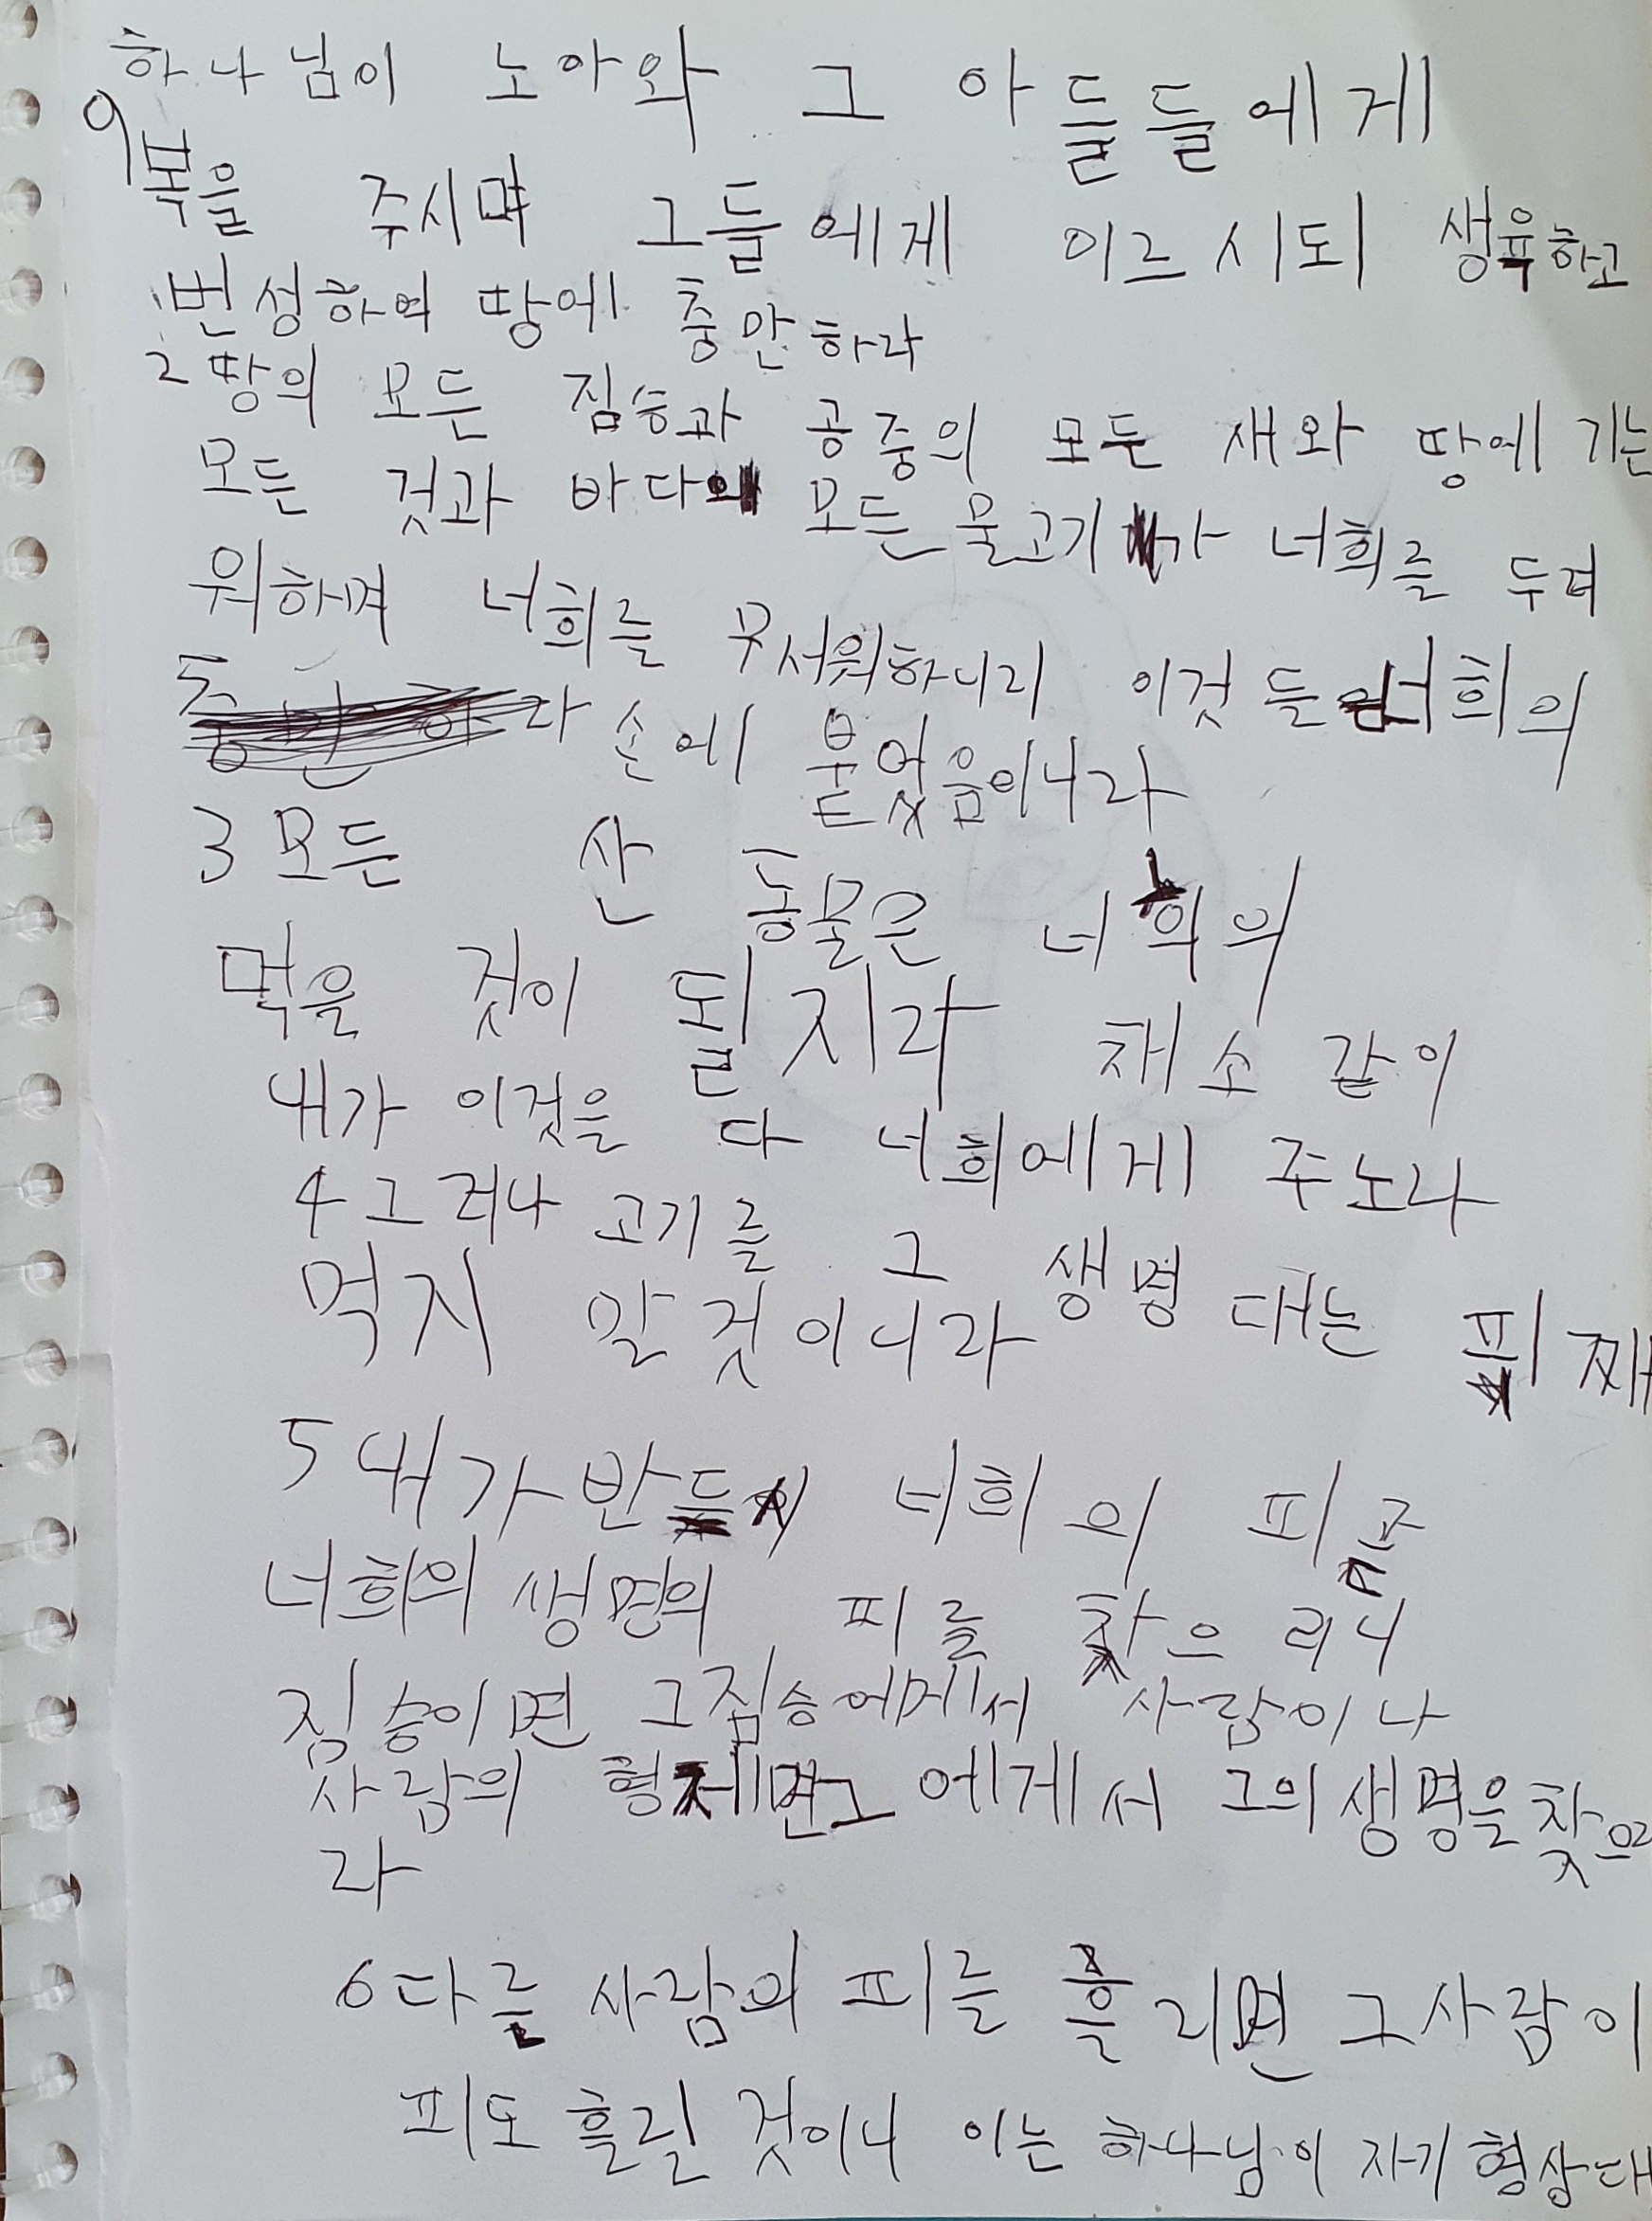 하나님이 노아와 그 아들들에게
9 복을 주시며 그들에게 이르시되 생육하고
번성하여 땅에 충만하라
2 땅의 모든 짐승과 공중의 모든 새와 땅에 기는
모든 것과 바다의 모든 물고기가 너희를 두려
워하며 너희를 무서워하니리 이것들은 너희의
라 손에 붙었음이니라
3 모든 산 동물은 너희의
먹을 것이 될지라 채소 같이
내가 이것을 다 너희에게 주노라
4 그러나 고기를 그 생명 대는 피째
먹지 말 것이니라
5 내가 반드시 너희의 피 곧
너희의 생명의 피를 찾으리니
짐승이면 그 짐승에게서 사람이나
사람의 형제면 그에게서 그의 생명을 찾으리
라
6 다를 사람의 피를 흘리면 그 사람이
피도 흘릴 것이니 이는 하나님이 자기 형상대